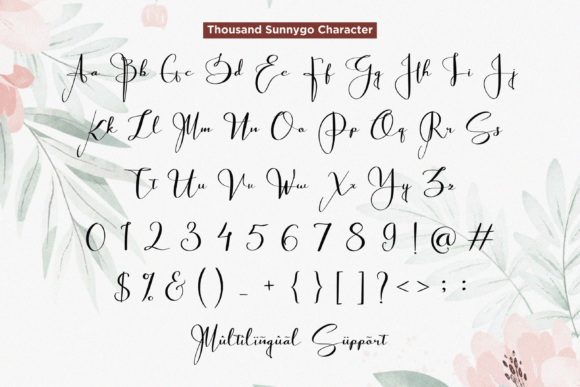 Thousand Sunnygo Character
Aa Bb Cc Dd Ee Ff Gg Hh Ii Jj
Kk Ll Mm Nn Oo Pp Qq Rr Ss
Tt Uu Vv Ww Xx Yy Zz
0 1 2 3 4 5 6 7 8 9 ! @ #
$ % & ( ) _ + { } [ ] ? < > ; :
Mùltilïñgùãl Süppõrt